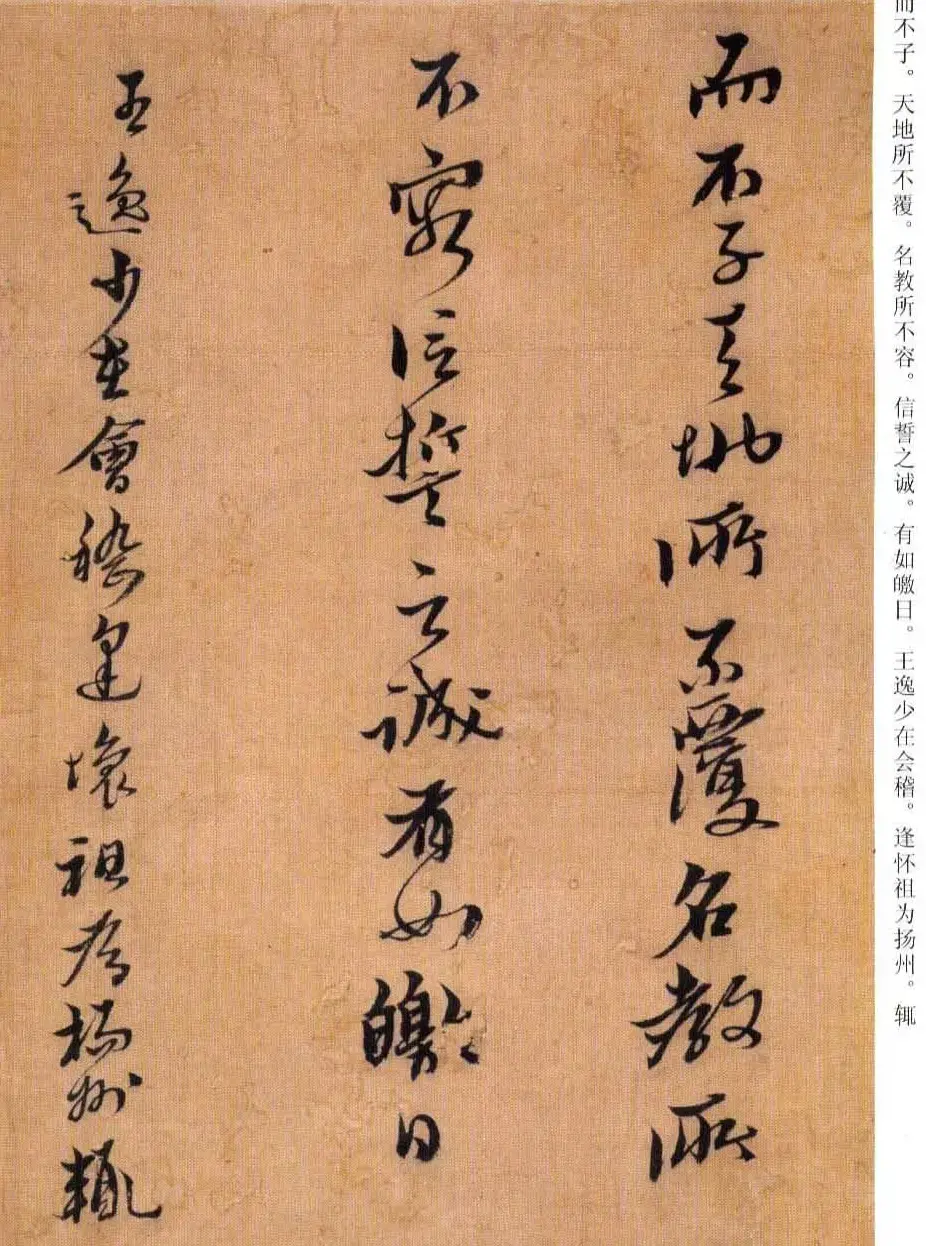 而不子。天地所不覆。名教所不容。信誓之诚。有如皦日。王逸少在会稽。逢怀祖为扬州。辄
而不子天地所不覆名教所
不容信誓之誠有如皦日
王逸少在會稽逢懷祖為楊州輒